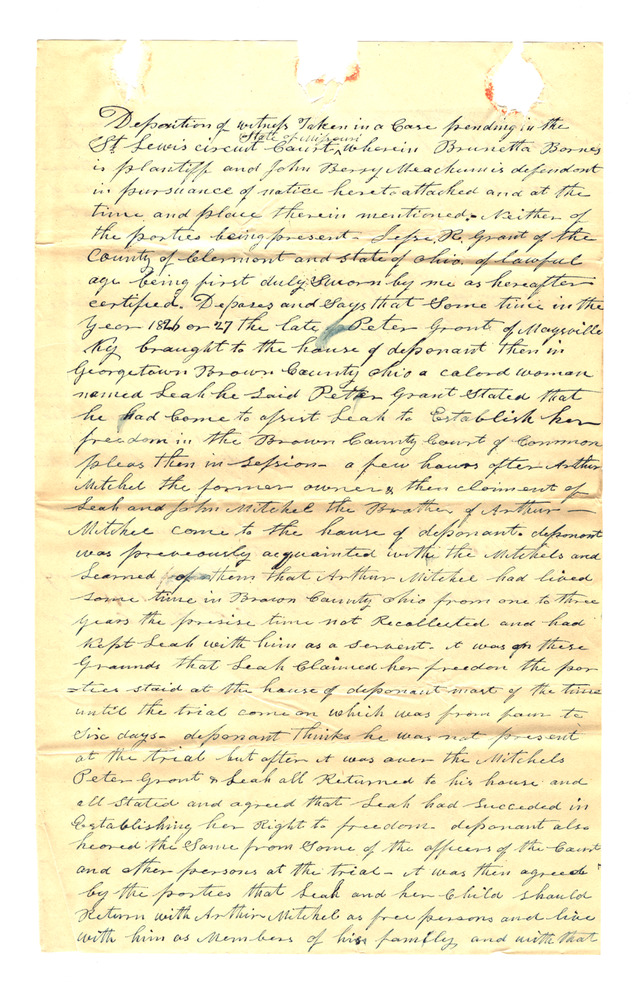 Deposition of witness Taken in a Case pending in the
State of missouri
St Lewis circuit Court ^ wherein Brunetta Barnes
is plantiff and John Berry Meachum is defendant
in pursuance of notice hereto attached and at the
time and place therein mentioned. Neither of
the parties being present - Jesse R. Grant of the
County of Clermont and state of Ohio. of lawful
age being first duly Sworn by me as hereafter
certified. Deposes and Says that Some time in the
Year 1826 or 27 the late Peter Grant of Maysville
Ky braught to the house of deponant then in
Georgetown Brown County Ohio a calord woman
named Leah he Said Peter Grant Stated that
he had Come to assist Leah to Establish her
freedom in the Brown County Court of Common
pleas then in Session - a few hours after Arthur
Mitchel the former owner & then claiment of
Leah and John Mitchel the Brother of Arthur -
Mitchel come to the house of deponant. deponant
was preveously acquainted with the Mitchels and
Learned of them that Arthur Mitchel had lived
some time in Brown County Ohio from one to three
years the presise time not Recollected and had
Kept Leah with him as a Servent - it was on these
Grounds that Leah Claimed her freedon the par-
=ties staid at the house of deponant most of the time
until the trial come on which was from four to
six days - deponant thinks he was not present
at the trial but after it was over the Mitchels
Peter Grant & Leah all Returned to his house and
all Stated and agreed that Leah had Succeded in
Establishing her Right to freedom - deponant also
heared the Same from Some of the officers of the Court
and other persons at the trial - it was then agreed
by the parties that Leah and her Child should
Return with Arthur Mitchel as free persons and live
with him as Members of his family and with that